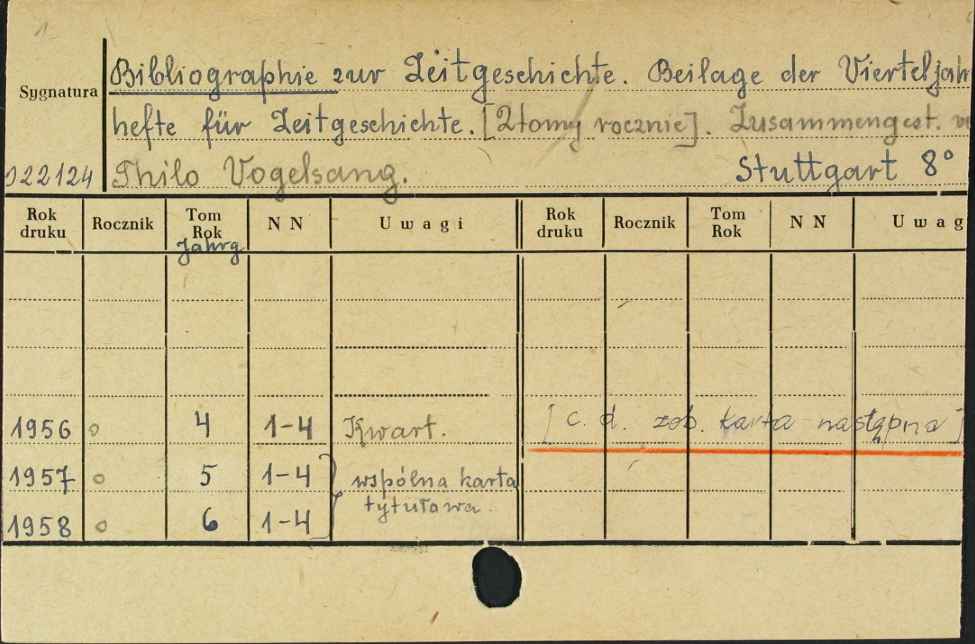 1
Bibliographie zur Zeitgeschichte. Beilage der Vierteljah
Sygnatura
hefte für Zeitgeschichte. [2 tomy rocznie]. Zusammengest. v
122124 Thilo Vogelsang. Stuttgart 8°
Rok druku Rocznik Tom Rok Jahrg N N Uwagi Rok druku Rocznik Tom Rok N N Uwag
1956 o 4 1-4 Kwart. [c. d. zob. karta następna]
1957 o 5 1-4 } wspólna karta
tytułowa.
1958 o 6 1-4